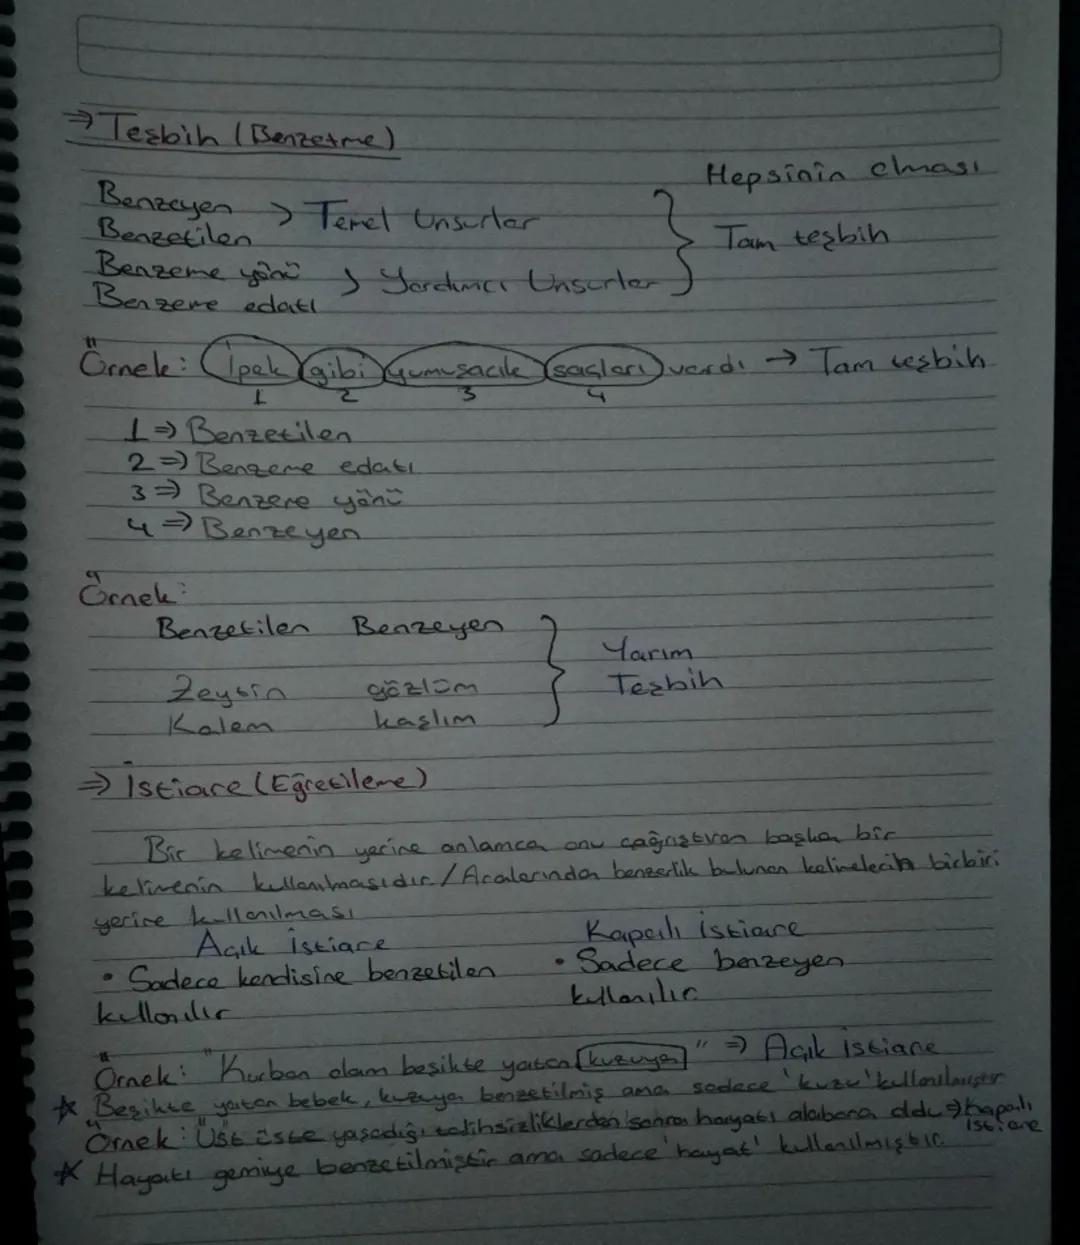 ⇒ Teşbih (Benzetme)
Hepsinin olması
Benzeyen
Benzetilen > Temel Unsurlar
Tam teşbih
Benzeme yönü
Benzeme edatı > Yardımcı Unsurlar
Örnek: İpek gibi yumuşacık saçları vardı → Tam teşbih
1 2 3 4
1 ⇒ Benzetilen
2 ⇒ Benzeme edatı
3 ⇒ Benzeme yönü
4 ⇒ Benzeyen
Örnek:
Benzetilen Benzeyen
Yarım
Zeytin gözlüm Teşbih
Kalem kaşlım
⇒ İstiare (Eğretileme)
Bir kelimenin yerine anlamca onu çağrıştıran başka bir
kelimenin kullanılmasıdır. / Aralarında benzerlik bulunan kelimelerin birbiri
yerine kullanılması
Açık İstiare Kapalı İstiare
• Sadece kendisine benzetilen • Sadece benzeyen
kullanılır kullanılır
Örnek: "Kurban olam beşikte yatan kuzuya" ⇒ Açık İstiare
* Beşikte yatan bebek, kuzuya benzetilmiş ama sadece 'kuzu' kullanılmıştır
Örnek: "Üst üste yaşadığı talihsizliklerden sonra hayatı alabora oldu ⇒ Kapalı
İstiare
* Hayatı gemiye benzetilmiştir ama sadece 'hayat' kullanılmıştır.